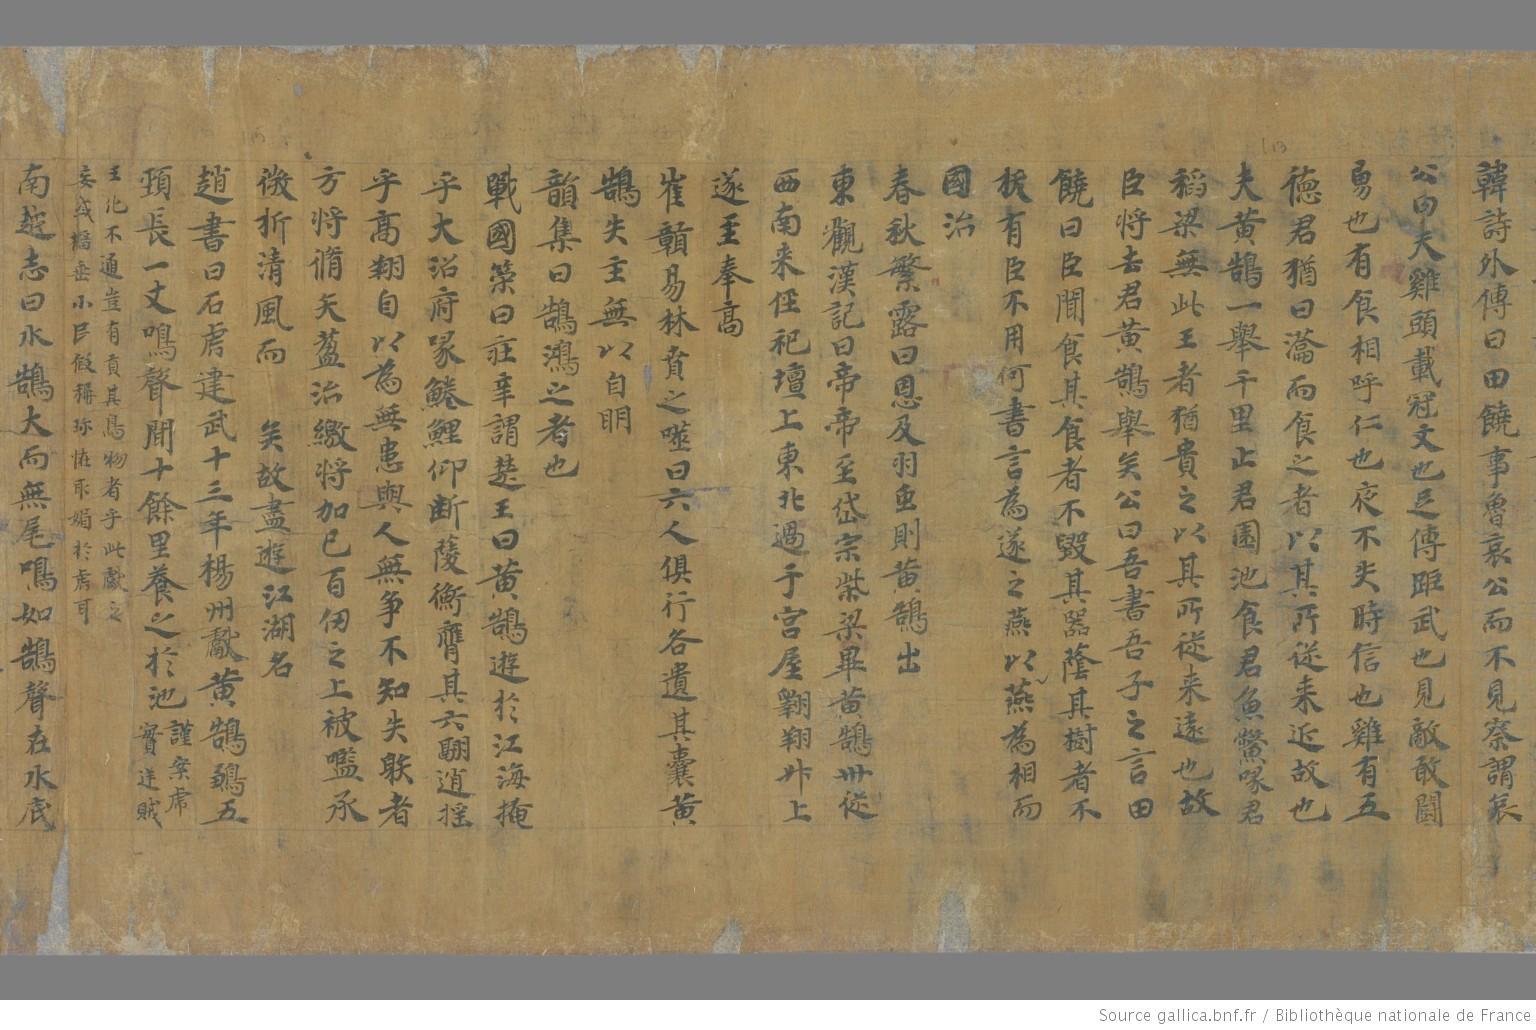 韓詩外傳曰田饒事魯哀公而不見察謂哀
公曰夫雞頭載冠文也足傅距武也見敵敢鬪
勇也有食相呼仁也夜不失時信也雞有五
德君猶曰瀹而食之者以其所従来近故也
夫黃鵠一舉千里止君園池食君魚鱉啄君
稻梁無此王者猶貴之以其所従来遠也故
臣將去君黃鵠舉矣公曰吾書吾子之言田
饒曰臣聞食其食者不毀其器蔭其樹者不
折有臣不用何書言為遂之燕以燕為相而
國治
春秋繁露曰恩及羽虫則黃鵠出
東觀漢記曰帝帝至岱宗柴梁畢黃鵠卅従
西南来径祀壇上東北過于宮屋翱翔升上
遂至奉高
崔贛易林賁之噬曰六人俱行各遺其囊黃
鵠失主無以自明
韻集曰鵠鴻之者也
戰國策曰莊辛謂楚王曰黃鵠遊於江海掩
乎大沼府啄鰌鯉仰断蔆衡膺其六翮逍揺
乎高翔自以為無患與人無争不知失䠶者
方將脩矢蘯治繳將加己百仞之上被㔋承
微折清風而 矣故盡遊江湖名
趙書曰石虎建武十三年楊州獻黃鵠鶵五
頚長一丈鳴聲聞十餘里養之於池 謹案虎
實逆賊
王化不通豈有貢其鳥物者乎此獻之
妄或
小民假稱珎恠取媚於虎耳
南越志曰水鵠大而無尾鳴如鵠聲在水底
Source gallica.bnf.fr / Bibliothèque nationale de France